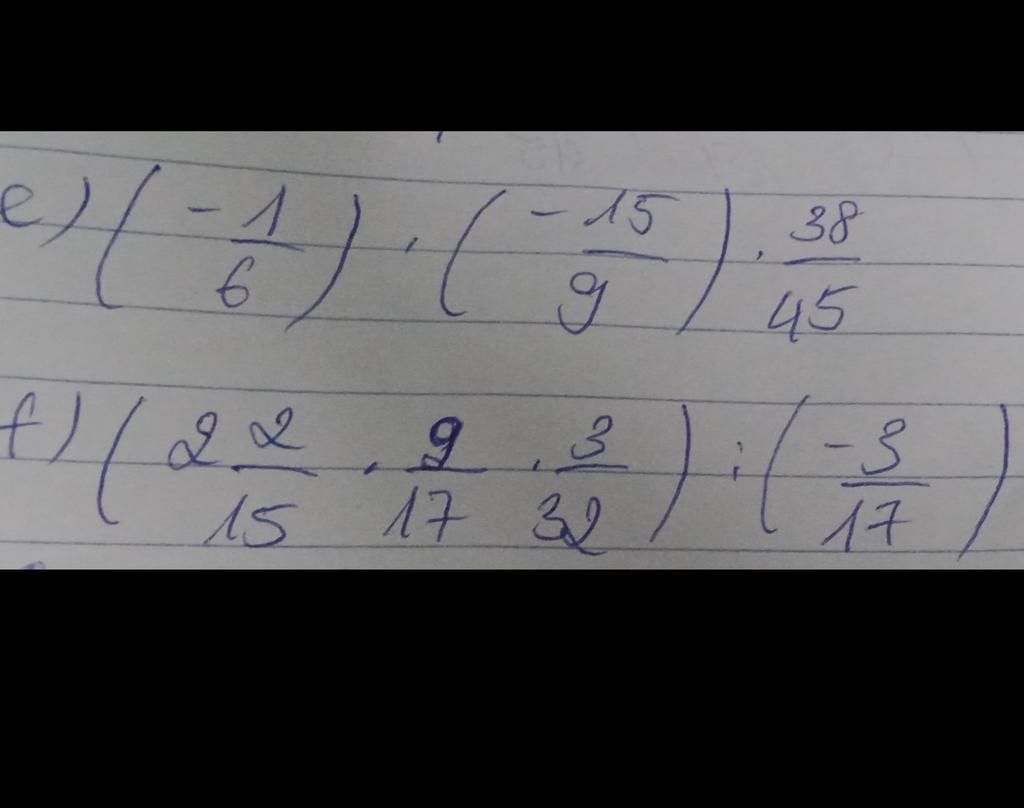 e) (-1/6) . (-15/9) . 38/45
f) (2 2/15 . 9/17 . 3/32) : (-3/17)